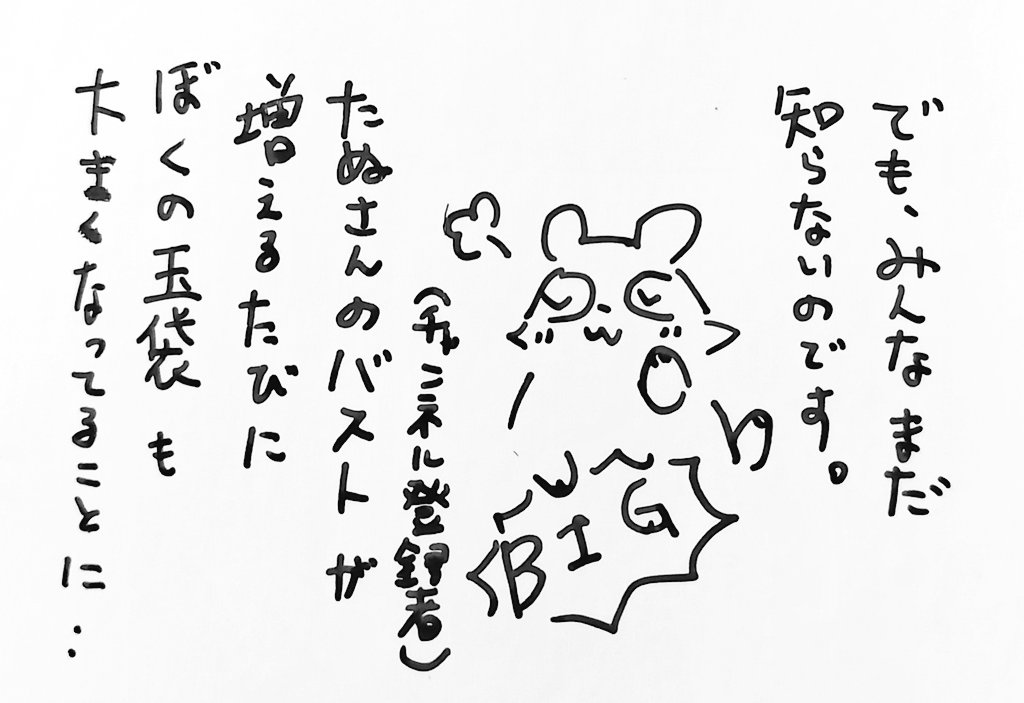 でも、みんなまだ
知らないのです。
BIG
(チャンネル登録者)
たぬさんのバストが
増えるたびに
ぼくの玉袋も
大きくなってることに‥